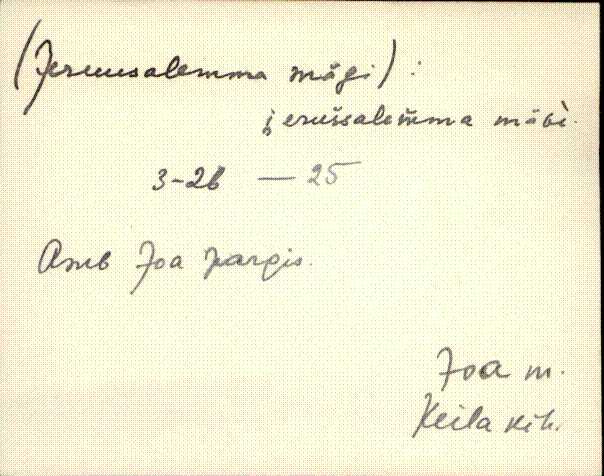 (Jeruusalemma mägi) :
jerušsalem̆ma mäɢì.
3-2b — 25
Asub Joa pargis.
Joa m.
Keila kih.